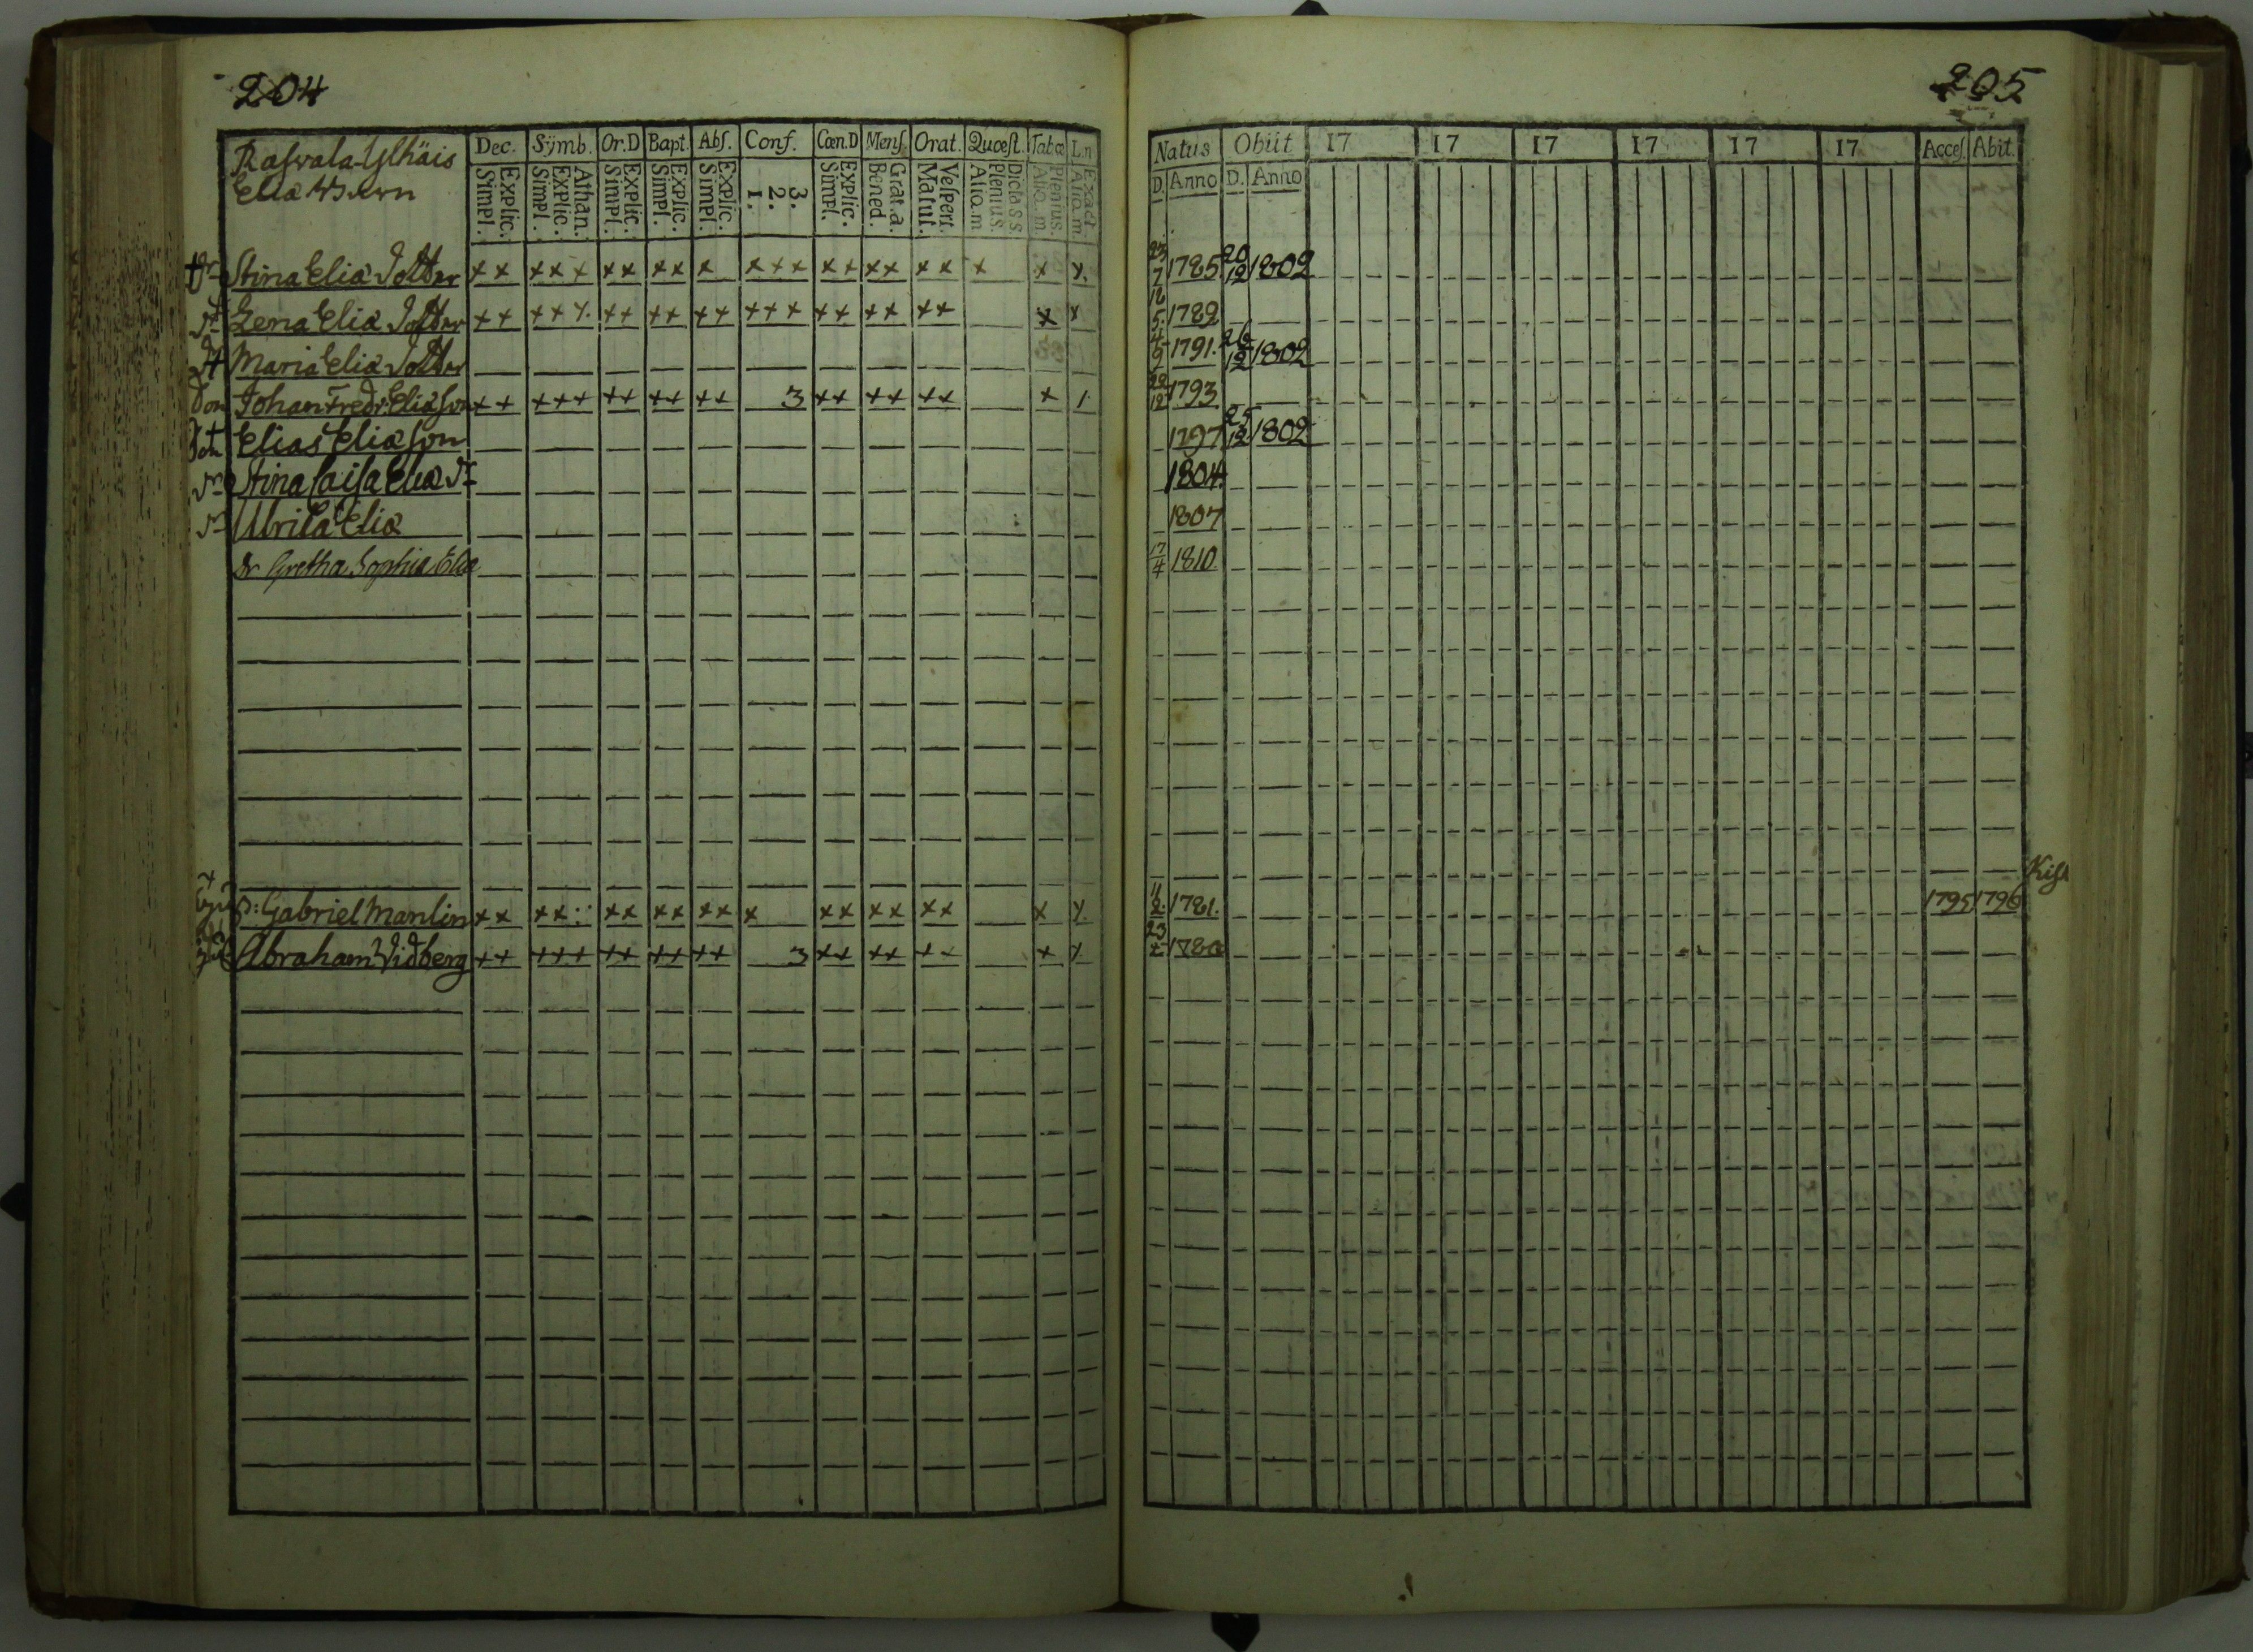 204
Elia
Dec. Sÿmb. Or.D Bapt. Abſ. Conf. Cœn.D Menſ. Orat. Quœſt. Tabœ L.n
Explic. Simpl. Athan. Explic. Simpl. Explic. Simpl. Explic. Simpl. Explic. Simpl. 3. 2. 1. Explic. Simpl. Grat.a. Bened. Veſpert. Matut. Dicta S S. Plenius. Alio.m Plenius. Alio.m. Exact. Alio.m.
Stina Elia Dotter x x x x x x x x x x x x x x x x x x x x x x
Lena Elia Dotter x x x x x x x x x x x x x x x x x x x x x x
Maria Elia Dotter
Johan Fredr: Eliason x x x x x x x x x x x 3 x x x x x x x 1
Elias Eliason
Stina Caisa Elia Dr
Ulrica Elia
Dr Gretha Sophia Eliæ
D: Gabriel Manlin x x x x x x x x x x x x x x x x x x x
Abraham Vidberg x x x x x x x x x x x 3 x x x x x x x x
205
Natus Obiit 17 17 17 17 17 17 Acceſ. Abit.
D. Anno D. Anno
23/7 1785 20/12 1802
18/5 1789
4/9 1791. 26/12 1802
22/12 1793
1797 25/12 1802
1804.
1807
17/4 1810
1781. 1795 1796
23